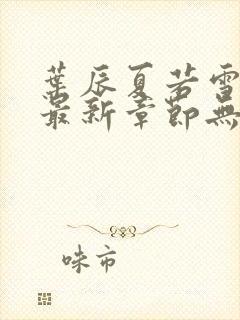 葉辰夏若雪
最新章節無
味市